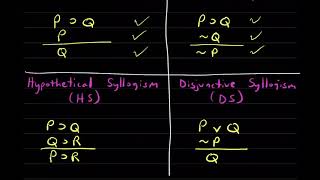 P ⊃ Q ✓
P ✓
Q ✓
P ⊃ Q ✓
~Q ✓
~P ✓
Hypothetical Syllogism
(HS)
P ⊃ Q
Q ⊃ R
P ⊃ R
Disjunctive Syllogism
(DS)
P ∨ Q
~P
Q